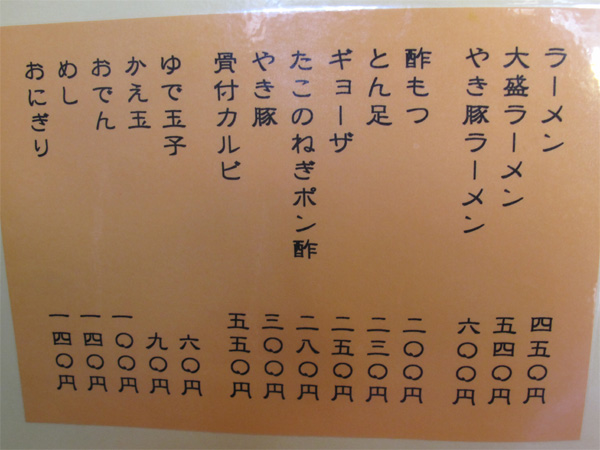 ラーメン 四五〇円
大盛ラーメン 五四〇円
やき豚ラーメン 六〇〇円
酢もつ 二〇〇円
とん足 二三〇円
ギョーザ 二五〇円
たこのねぎポン酢 二八〇円
やき豚 三〇〇円
骨付カルビ 五五〇円
ゆで玉子 六〇円
かえ玉 九〇円
おでん 一〇〇円
めし 一四〇円
おにぎり 一四〇円